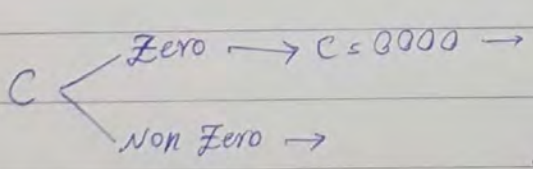 Zero → C = 0000 →
C
Non Zero →